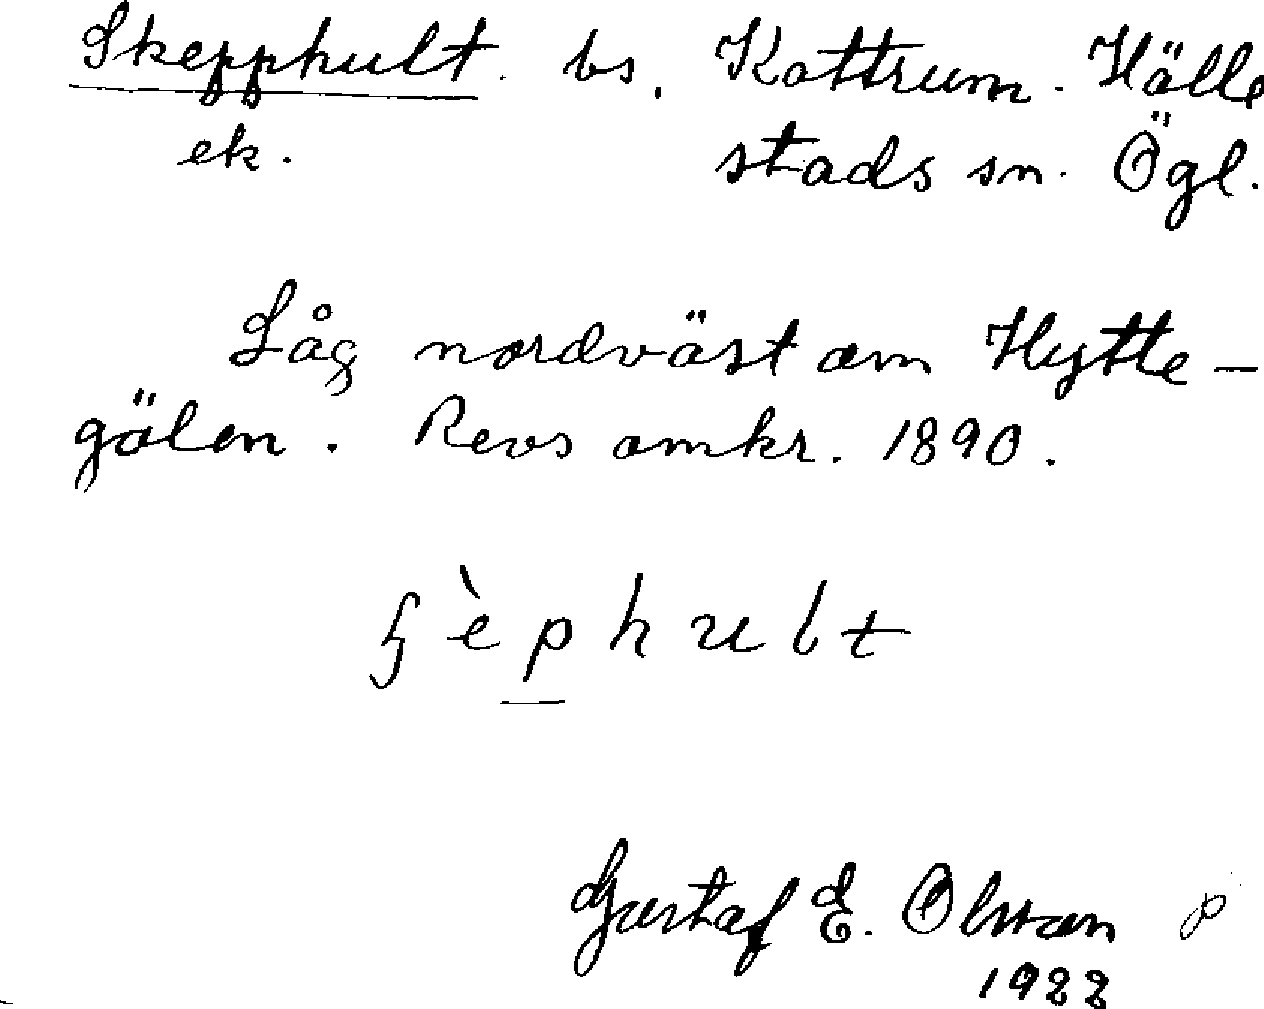 Skepphult. bs. Kottrum. Hälle
ek. stads sn. Ögl.
Låg nordväst om Hytte-
gölen. Revs omkr. 1890.
ʃèphult
Gustaf E. Olsson
1922